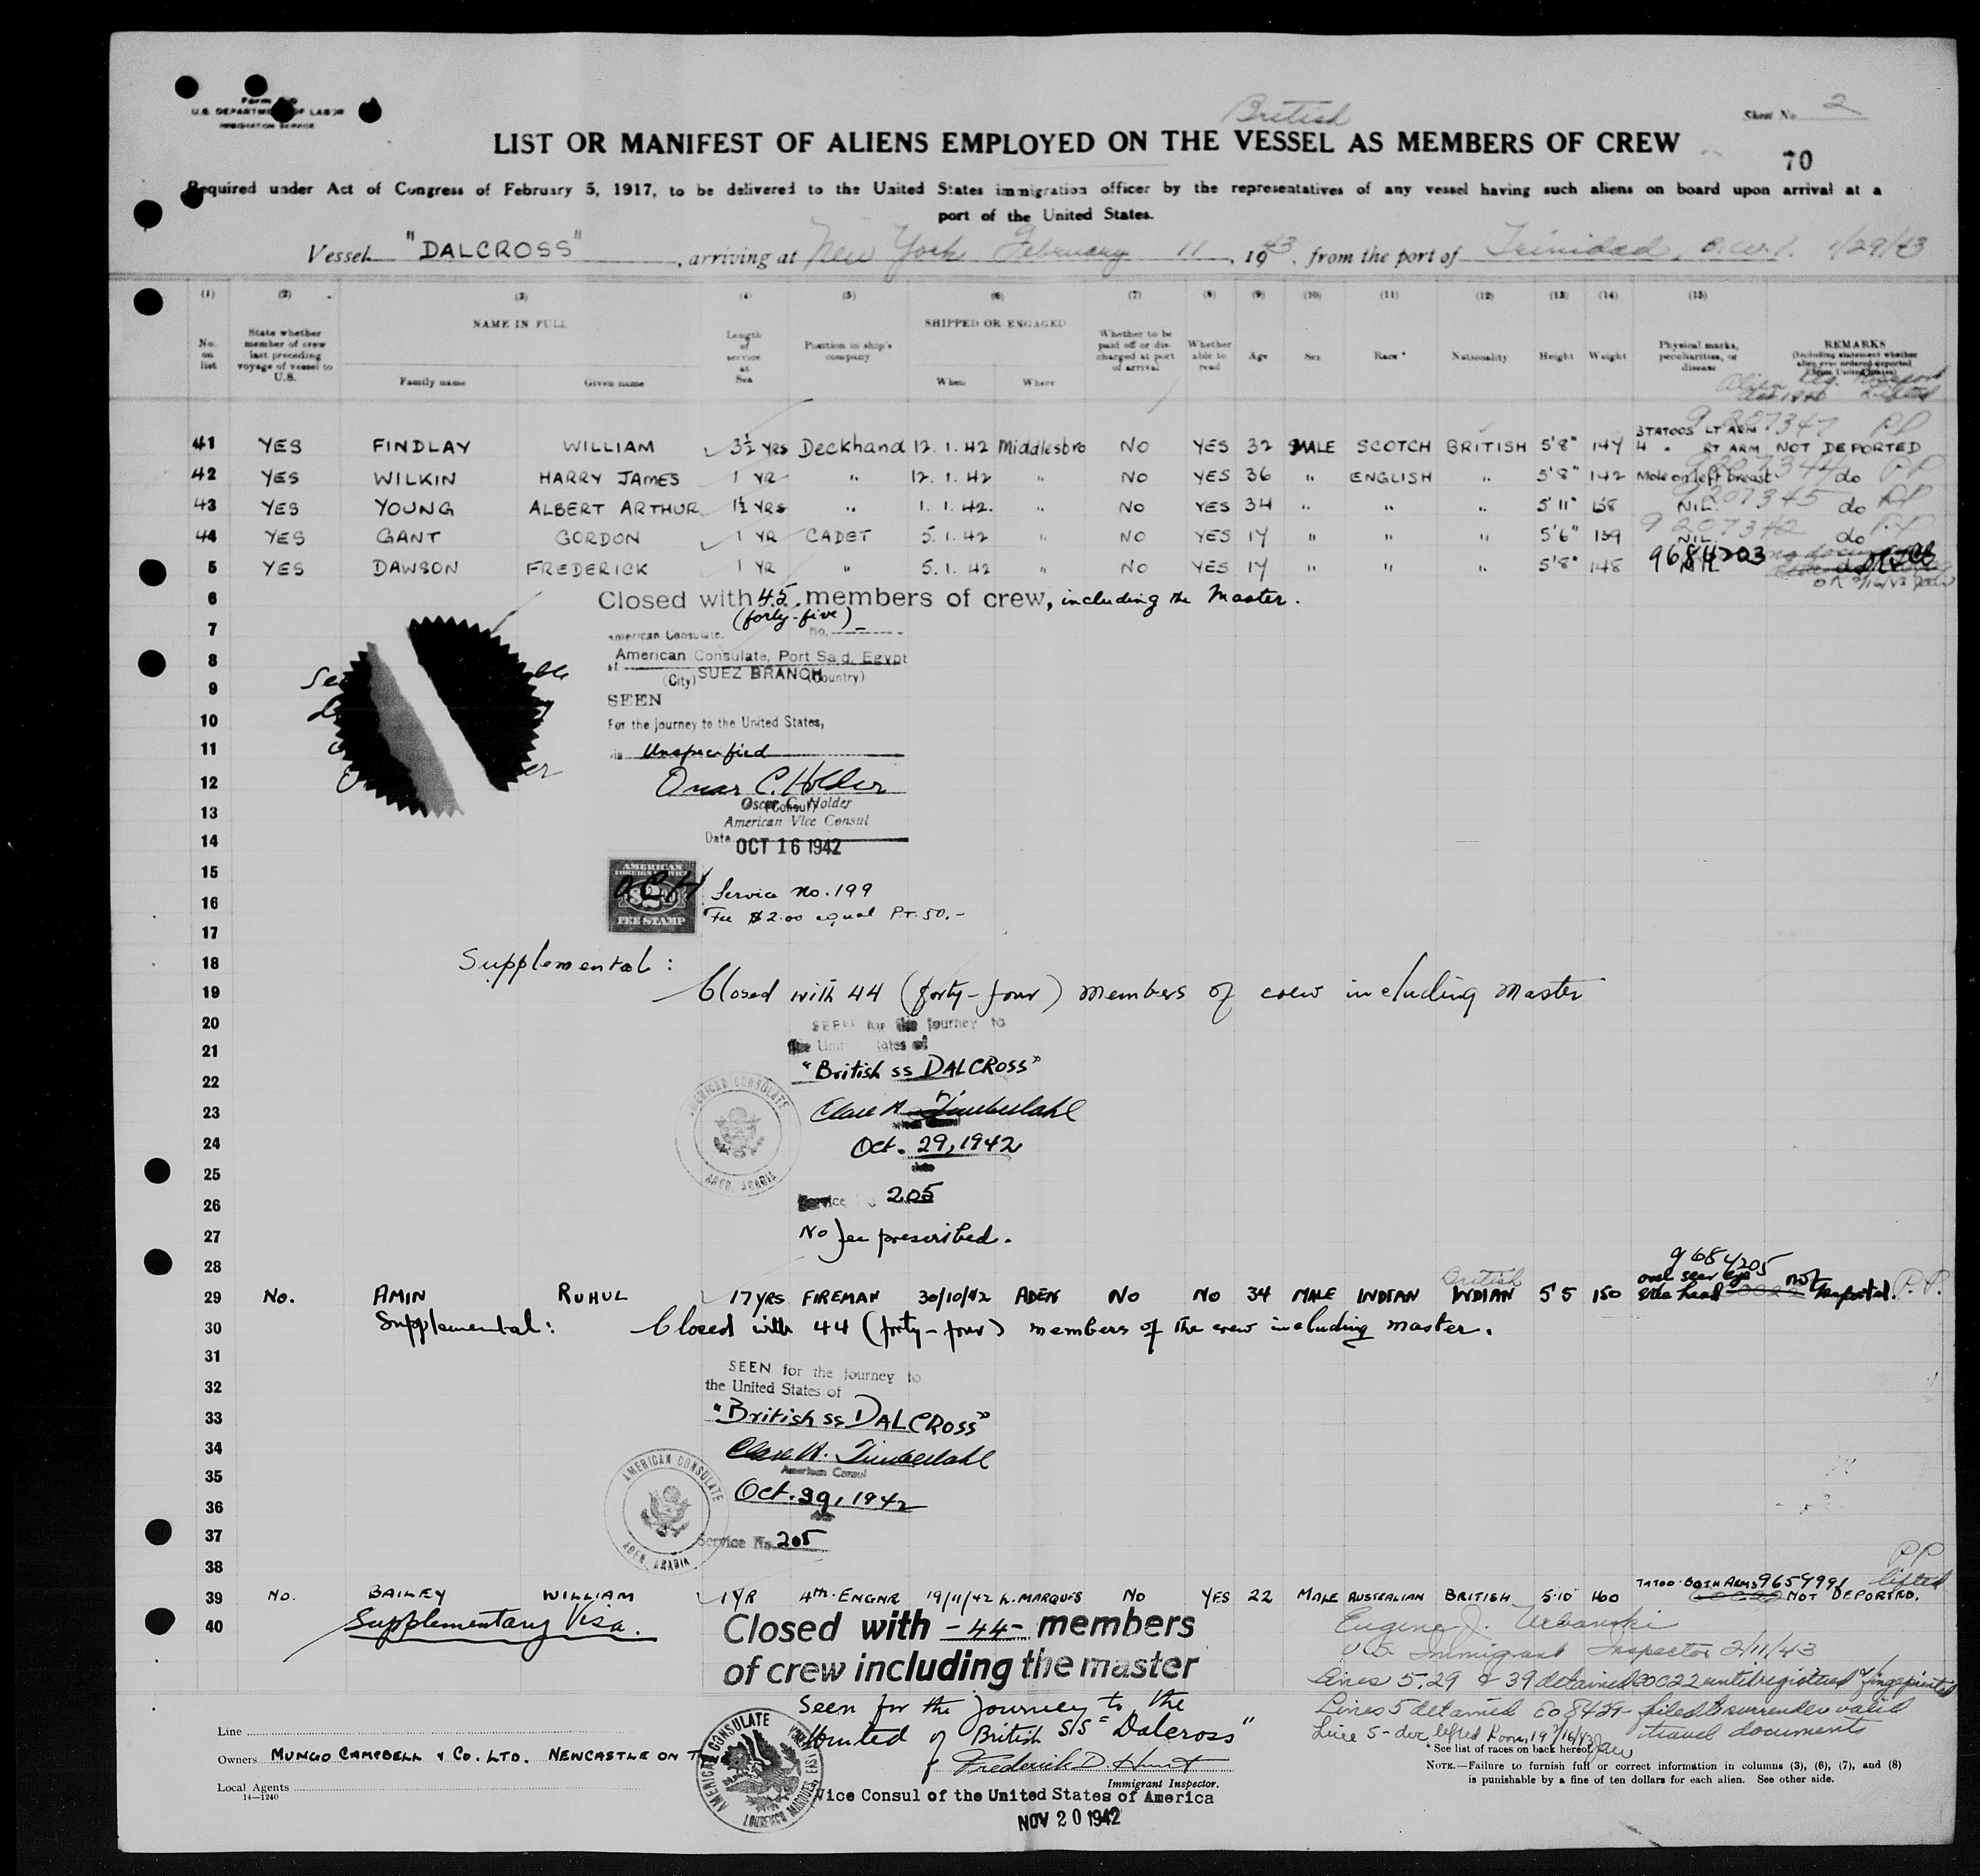 U.S. DEPARTMENT OF LABOR
IMMIGRATION SERVICE
British
Sheet No. 2
LIST OR MANIFEST OF ALIENS EMPLOYED ON THE VESSEL AS MEMBERS OF CREW
70
Required under Act of Congress of February 5, 1917, to be delivered to the United States immigration officer by the representatives of any vessel having such aliens on board upon arrival at a
port of the United States.
Vessel "DALCROSS", arriving at New York February 11, 1943, from the port of Trinidad, B.W.I. 1/29/43
(1) (2) (3) (4) (5) (6) (7) (8) (9) (10) (11) (12) (13) (14) (15)
No. on list
State whether member of crew last preceding voyage of vessel to U.S.
NAME IN FULL
Family name Given name
Length of service at Sea
Position in ship's company
SHIPPED OR ENGAGED
When Where
Whether to be paid off or discharged at port of arrival
Whether able to read
Age
Sex
Race*
Nationality
Height
Weight
Physical marks, peculiarities, or disease
REMARKS
(Including statement whether alien ever ordered deported from United States)
9207347 PP
41 YES FINDLAY WILLIAM 3½ YRS Deckhand 12.1.42 Middlesbro NO YES 32 MALE SCOTCH BRITISH 5'8" 147 3 TATOOS LT ARM 4 " RT ARM NOT DEPORTED
42 YES WILKIN HARRY JAMES 1 YR " 12.1.42 " NO YES 36 " ENGLISH " 5'8" 142 Mole on left breast do PP
43 YES YOUNG ALBERT ARTHUR 1½ YRS " 1.1.42. " NO YES 34 " " " 5'11" 158 NIL do PP
9207342 PP
44 YES GANT GORDON 1 YR CADET 5.1.42 " NO YES 17 " " " 5'6" 139 NIL do
5 YES DAWSON FREDERICK 1 YR " 5.1.42 " NO YES 17 " " " 5'8" 148 9684203
6 Closed with 45 members of crew, including the Master.
(forty-five)
7 American Consulate. No.
8 American Consulate, Port Said, Egypt
at
(City) SUEZ BRANCH (Country)
9 SEEN
10 For the journey to the United States,
11 via Unspecified
12 Oscar C. Holder
13 Oscar C. Holder
(Consul)
American Vice Consul
14 Date OCT 16 1942
15 AMERICAN FOREIGN SERVICE
O C H
$2
Service No. 199
16 FEE STAMP
Fee $2.00 equal P.T. 50.-
17
18 Supplemental:
19 Closed with 44 (forty-four) members of crew including Master
20 SEEN for the journey to
21 the United States of
22 "British ss DALCROSS"
AMERICAN CONSULATE
23 Clare H. Timberlake
24 Oct. 29, 1942
25 ADEN, ARABIA
26 Service No 205
27 No fee prescribed.
28 9684205
29 No. AMIN RUHUL 17 YRS FIREMAN 30/10/42 ADEN NO NO 34 MALE INDIAN British INDIAN 5'5 150 P.P.
30 Supplemental: Closed with 44 (forty-four) members of the crew including master.
31 SEEN for the journey to
32 the United States of
33 "British ss DALCROSS"
34 Clare H. Timberlake
AMERICAN CONSULATE
35 American Consul
36 Oct. 29, 1942
37 Service No. 205
ADEN, ARABIA
38 PP
39 No. BAILEY WILLIAM 1 YR 4th ENGNR 19/11/42 L. MARQUES NO YES 22 MALE AUSTRALIAN BRITISH 5.10 160 TATOO BOTH ARMS 9659991 lifted NOT DEPORTED.
40 Supplementary Visa.
Closed with -44- members
of crew including the master
Eugene J. Urbanski
U.S. Immigrant Inspector 2/11/43
Lines 5, 29 & 39 detained until registered & fingerprinted
Lines 5 detained EO 8429 - failed to surrender valid
travel documents
Seen for the journey to the
United of British S/S "Dalcross"
Frederick D. Hunt
Immigrant Inspector.
Vice Consul of the United States of America
NOV 20 1942
AMERICAN CONSULATE
LOURENCO MARQUES, EAST AFRICA
Line
Owners MUNGO CAMPBELL & CO. LTD. NEWCASTLE ON
Local Agents
14—1240
* See list of races on back hereof.
NOTE.—Failure to furnish full or correct information in columns (3), (6), (7), and (8)
is punishable by a fine of ten dollars for each alien. See other side.